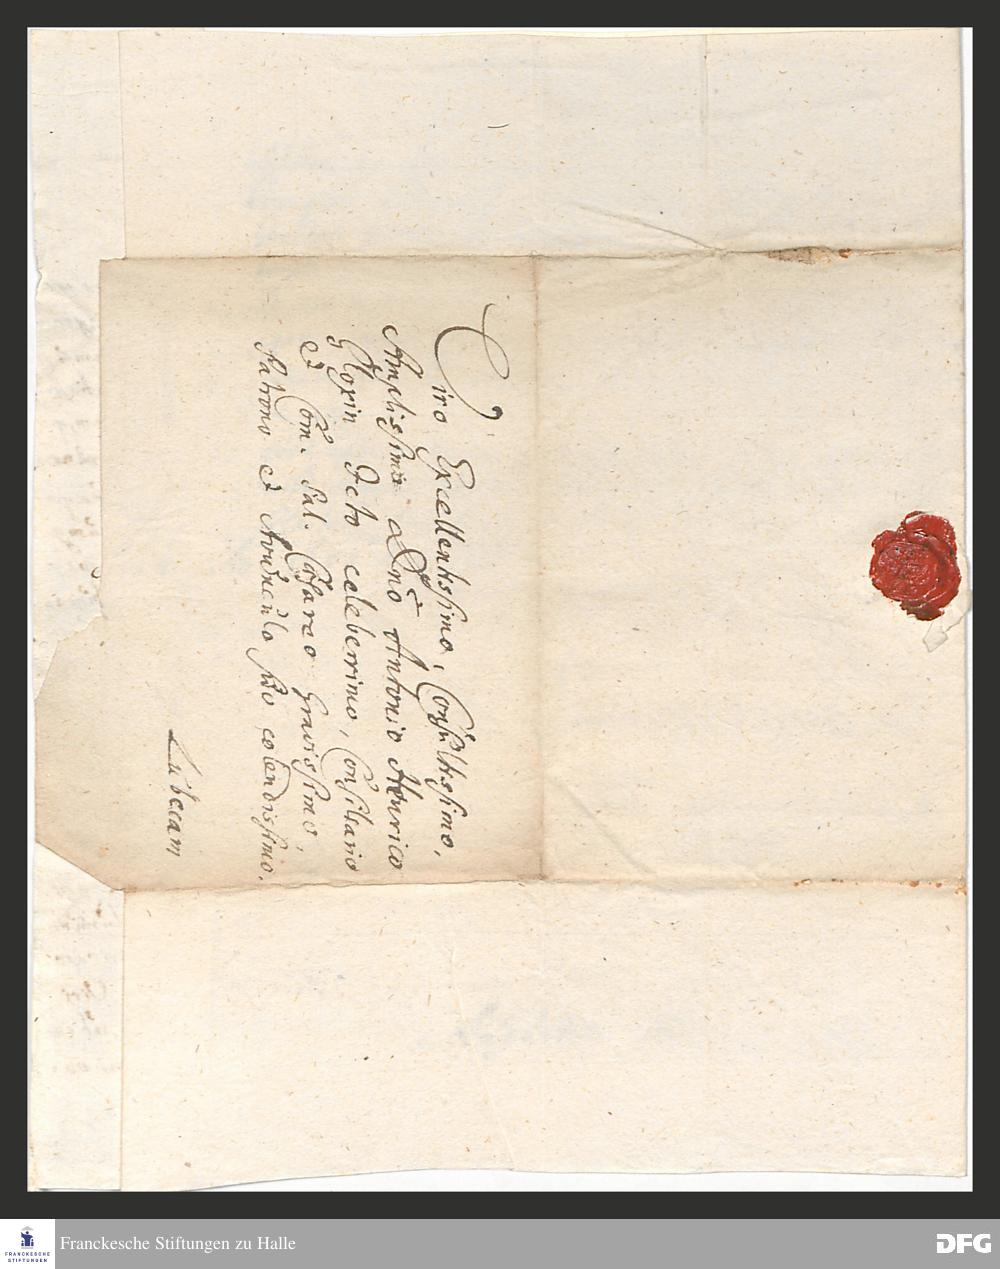 Viro Excellentissimo, Consultissimo,
Amplissimo Dnō Antonio Henrico
Gloxin Icto celeberrimo, Consiliario
et Com. Pal. Cæsareo Gravissimo,
Patrono et Avunculo suo colendissimo.
Lubecam
FRANCKESCHE
STIFTUNGEN
Franckesche Stiftungen zu Halle
DFG